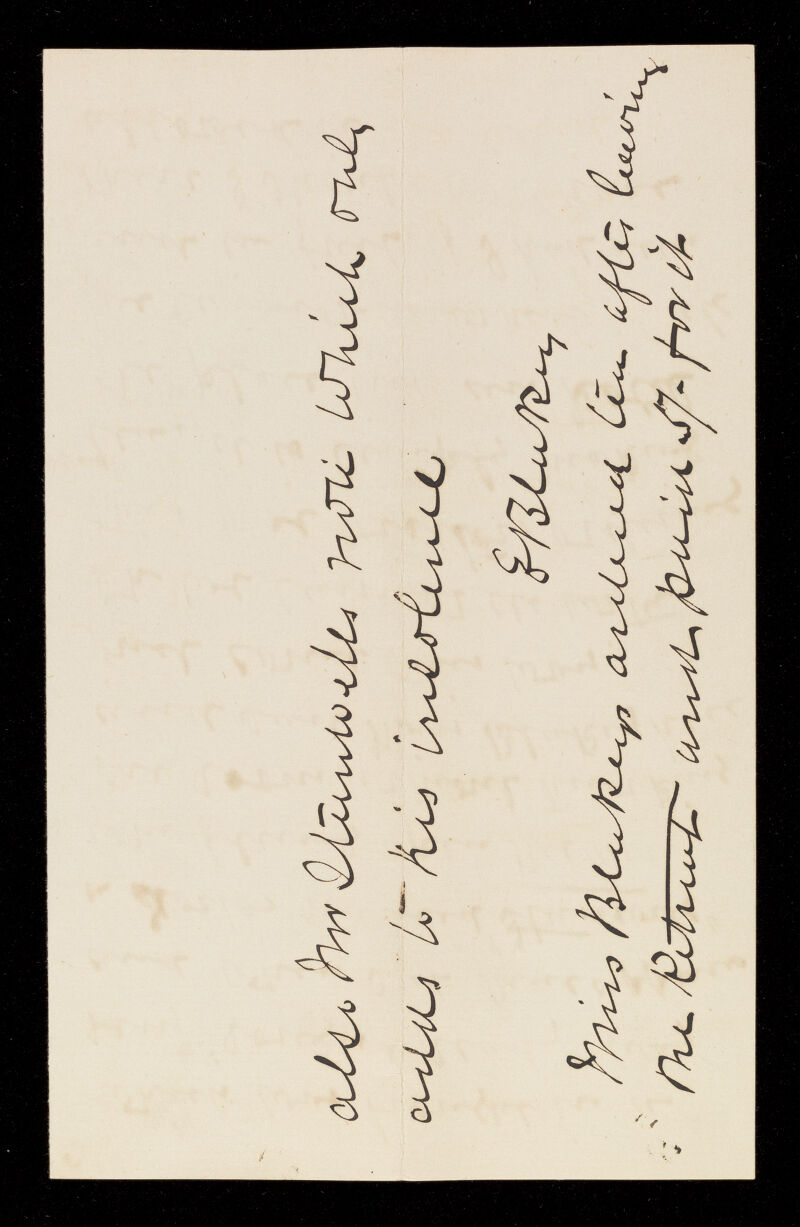 also Mr Stanwells note which only
adds to his insolence
E Blakey
Miss Blakey ordered tea after leaving
the Retreat and paid 5/- for it